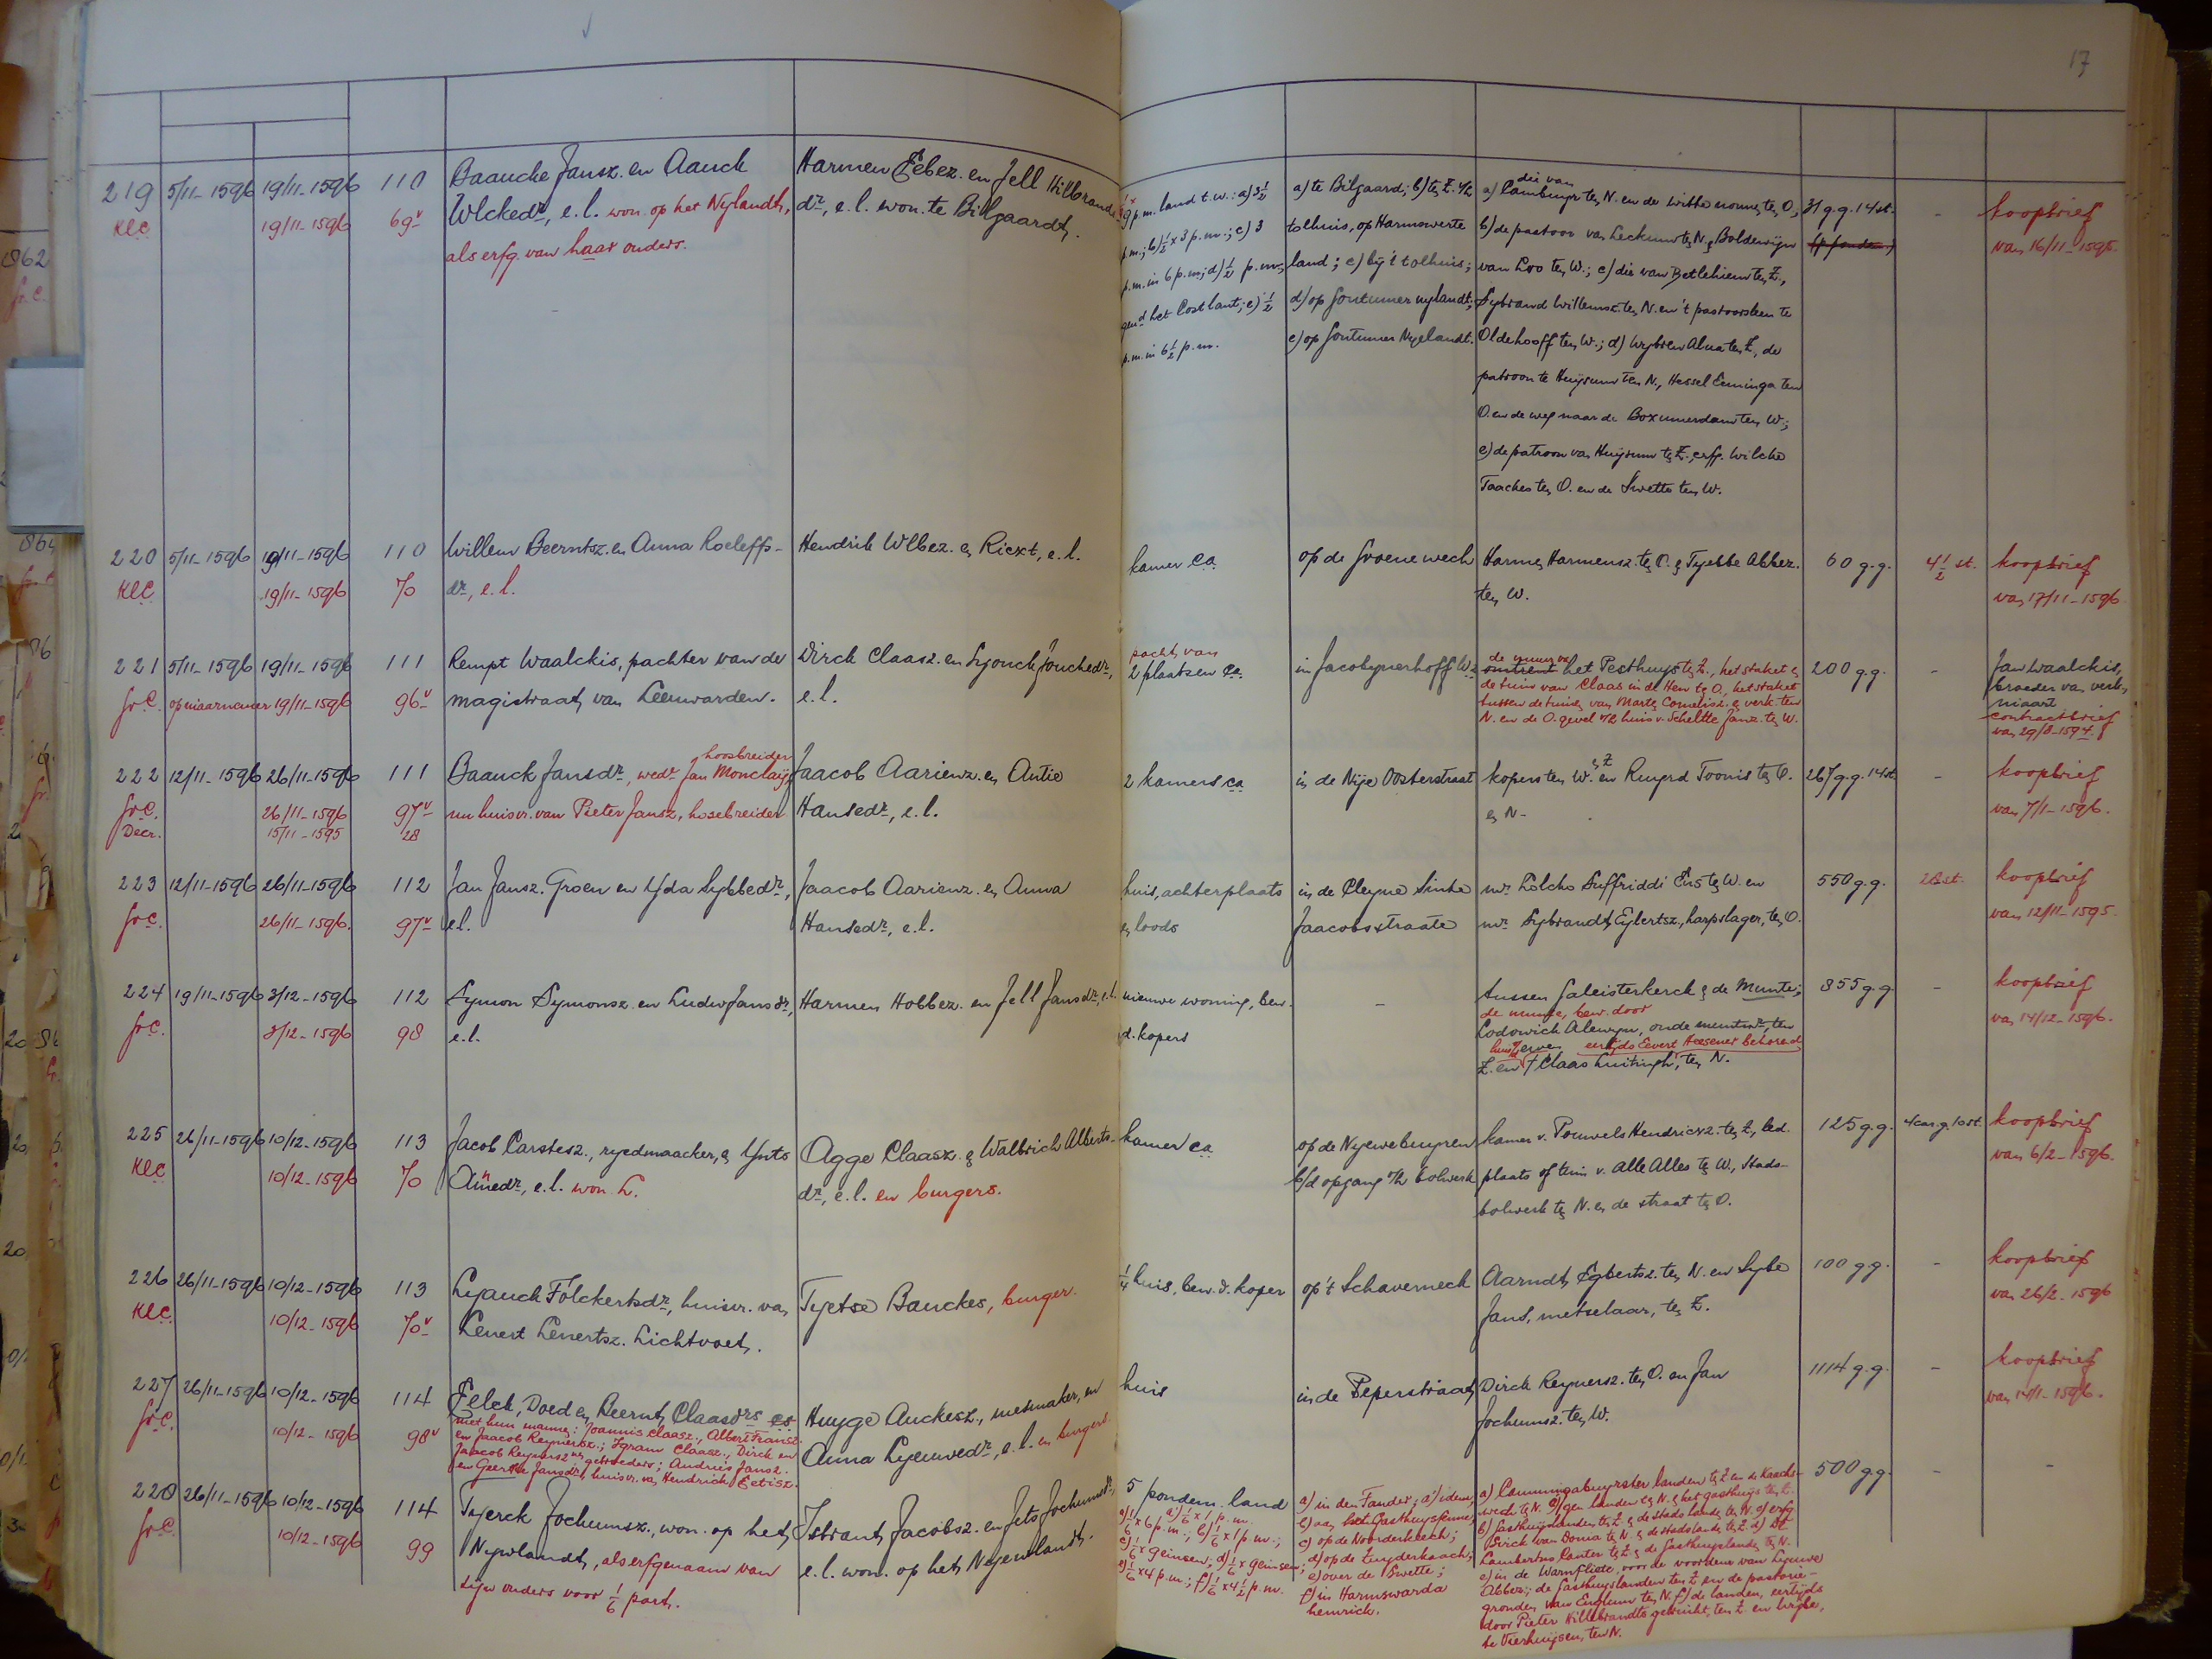 17
219 5/11-1596 19/11-1596 110 Baancke Jansz. en Aanck Harmen Febez. en Jell Hilbrands
KLC 19/11-1596 69v Wlckedr, e.l. won. op het Nylandt, dr, e.l. won. te Bilgaardt.
als erfg. van haar ouders.
p.m. land t.w.: a) 3½ a) te Bilgaard; b) te Z. v/h a) die van Cambuyr ten N. en de witte nonne ten O., 31 g.g. 14 st. - koopbrief
p.m.; b) ½ x 3 p.m.; c) 3 tolhuis, op Harmswerte b) de pastoor van Leckum te N. & Boldewijn van 16/11-1595
p.m. in 6 p.m; d) ½ p.m, land; c) bij 't tolhuis; van Loo ten W.; c) die van Betlehiem ten Z.,
gend het Cost lant; e) ½ d) op Goutumer nylandt; Sybrand Willemsz. ten N. en 't pastoorsleen te
p.m. in 6½ p.m. e) op Goutumer Nyelandt. Oldehooff ten W.; d) Wybren Alua ten Z., de
patroon te Huijsum ten N., Hessel Eeminga ten
O. en de weg naar de Boxumerdam ten W.;
e) de patroon van Huijsum te Z., erfg. Wilcke
Taackes ten O. en de Swette ten W.
220 5/11-1596 19/11-1596 110 Willem Beerntsz. en Anna Roeleffs- Hendrik Wlbez. en Riext, e.l.
KLC 19/11-1596 70 dr, e.l.
kamer ca op de Groene wech Harmen Harmensz. te O. & Tyebbe Abbez. 60 g.g. 4½ st. koopbrief
ten W. van 17/11-1596
221 5/11-1596 19/11-1596 111 Rempt Waalckis, pachter van de Dirck Claasz. en Syonck Jouckedr,
Gr.C. op niaarnemer 19/11-1596 96v magistraat van Leeuwarden. e.l.
pacht van de muur van
2 plaatsen ca in Jacobynerhoff omtrent het Pesthuys te Z., het staket & 200 g.g. - Jan Waalckis,
de tuin van Claas in de Hen te O., het staket broeder van verk.,
tussen de tuin van Marten Cornelisz. & verk. ten niaart
N. en de O. gevel v/h huis v. Scheltte Janz. te W. contractbrief
van 29/8-1594
hoosbreider
222 12/11-1596 26/11-1596 111 Baanck Jansdr, wedr Jan Monclaij Jaacob Aarienz. en Antie
Gr.C. 26/11-1596 97v nu huisvr. van Pieter Jansz, hosebreider Hansedr, e.l.
Decr. 15/11-1595 28
2 kamers ca in de Nije Oosterstraat kopers ten W. & Z en Ruyrd Toonis te O. 267 g.g. 14 st. - koopbrief
en N- van 7/1-1596.
223 12/11-1596 26/11-1596 112 Jan Jansz. Groen en Yda Sybbedr, Jaacob Aarienz. en Anna
Gr.C. 26/11-1596. 97v e.l. Hansedr, e.l.
huis, achterplaats in de Cleyne Sinte mr Lolcke Suffriddi Ens te W. en 550 g.g. 28 st. koopbrief
en loods Jaacobsstraate mr Sybrandt Eylertsz., harpslager, te O. van 12/11-1595.
224 19/11-1596 3/12-1596 112 Symon Symonsz. en Luduw Jansdr, Harmen Hobbez. en Jell Jansdr, e.l.
Gr.C. 3/12-1596 98 e.l.
nieuwe woning, bew. - tussen Galeisterkerck & de Munte; 855 g.g. - koopbrief
d. kopers de munte, bew. door van 14/12-1596.
Lodowich Alewyn, oude muntmr, ten
huis & erve eertijds Evert Heesener behorend
Z. en † Claas Luitingh, ten N.
225 26/11-1596 10/12-1596 113 Jacob Carstesz., ryedmaacker, & Ynts Agge Claasz. & Walbrich Alberts-
KLC 10/12-1596 70 Annedr, e.l. won. L. dr, e.l. en burgers.
kamer ca op de Nyewebuyren kamer v. Pouwels Hendricxz. te Z., led. 125 g.g. 4 car.g. 10 st. koopbrief
b/d opgang v/h bolwerk plaats of tuin v. Alle Alles te W., Stads- van 6/2-1596.
bolwerk te N. en de straat te O.
226 26/11-1596 10/12-1596 113 Lyauck Folckertsdr, huisvr. van Tyetse Banckes, burger.
KLC 10/12-1596 70v Lenert Lenertsz. Lichtvoet.
¼ huis, bew. d. koper op 't Schaverneck Aarndt Egbertsz. ten N. en Sybe 100 g.g. - koopbrief
Jans, metselaar, te Z. van 26/2-1596
227 26/11-1596 10/12-1596 114 Jelck, Doed en Beernt Claasdrs Huyge Auckesz., mesmaker, en
Gr.C. 10/12-1596 98v met hun mannen: Joannis Claasz., Albert Fransz. Anna Lyeuwedr, e.l. en burgers
en Jaacob Reynersz.; Ygram Claasz., Dirck en
Jaacob Reynersz. gebroeders; Andries Jansz.
en Geertke Jansdr, huisvr. van Hendrick Eetisz.
huis in de Peperstraat Dirck Reynersz. ten O. en Jan 1114 g.g. - koopbrief
Jochumsz. te W. van 14/1-1596.
228 26/11-1596 10/12-1596 114 Tyerck Jochumsz., won. op het Isbrant Jacobsz. en Jets Jochumsdr,
Gr.C. 10/12-1596 99 Nywlandt, als erfgenaam van e.l. won. op het Nyewlandt.
zijn ouders voor 1/6 part.
5 pondem. land a) in den Fander; a') idem; a) Cammingabuyrster landen te Z en de Kaachs- 500 g.g. - -
a) 1/6 x 6 p.m. a') 1/6 x 1 p.m. b) aan het Gasthuyslaene; wech te N. a') gen. landen te N. & het gasthuys te Z.
b) 1/6 x 1 p.m.; c) op de Noorderkerck; b) Gasthuyslanden te Z & de stads lande te N. c) erfg.
c) 1/6 x 9 einsen; d) 1/6 x 9 einsen; d) op de Zuyderkaach; Sirck van Donia te N. & de stadslande te Z. d) Dr
e) 1/6 x 4 p.m.; f) 1/6 x 4½ p.m. e) over de Swette; Lambertus Canter te Z & de Gasthuyslande te N.
f) in Harmswarda e) in de Warnfliete, voor de voordeur van Lyeuwe
hemrick. Abbez.; de Gasthuyslanden ten Z en de pastorie-
gronden van Englum ten N. f) de landen, eertijds
door Pieter Hillebrandts gebruikt, ten Z. en
te Vierhuijsen, ten N.